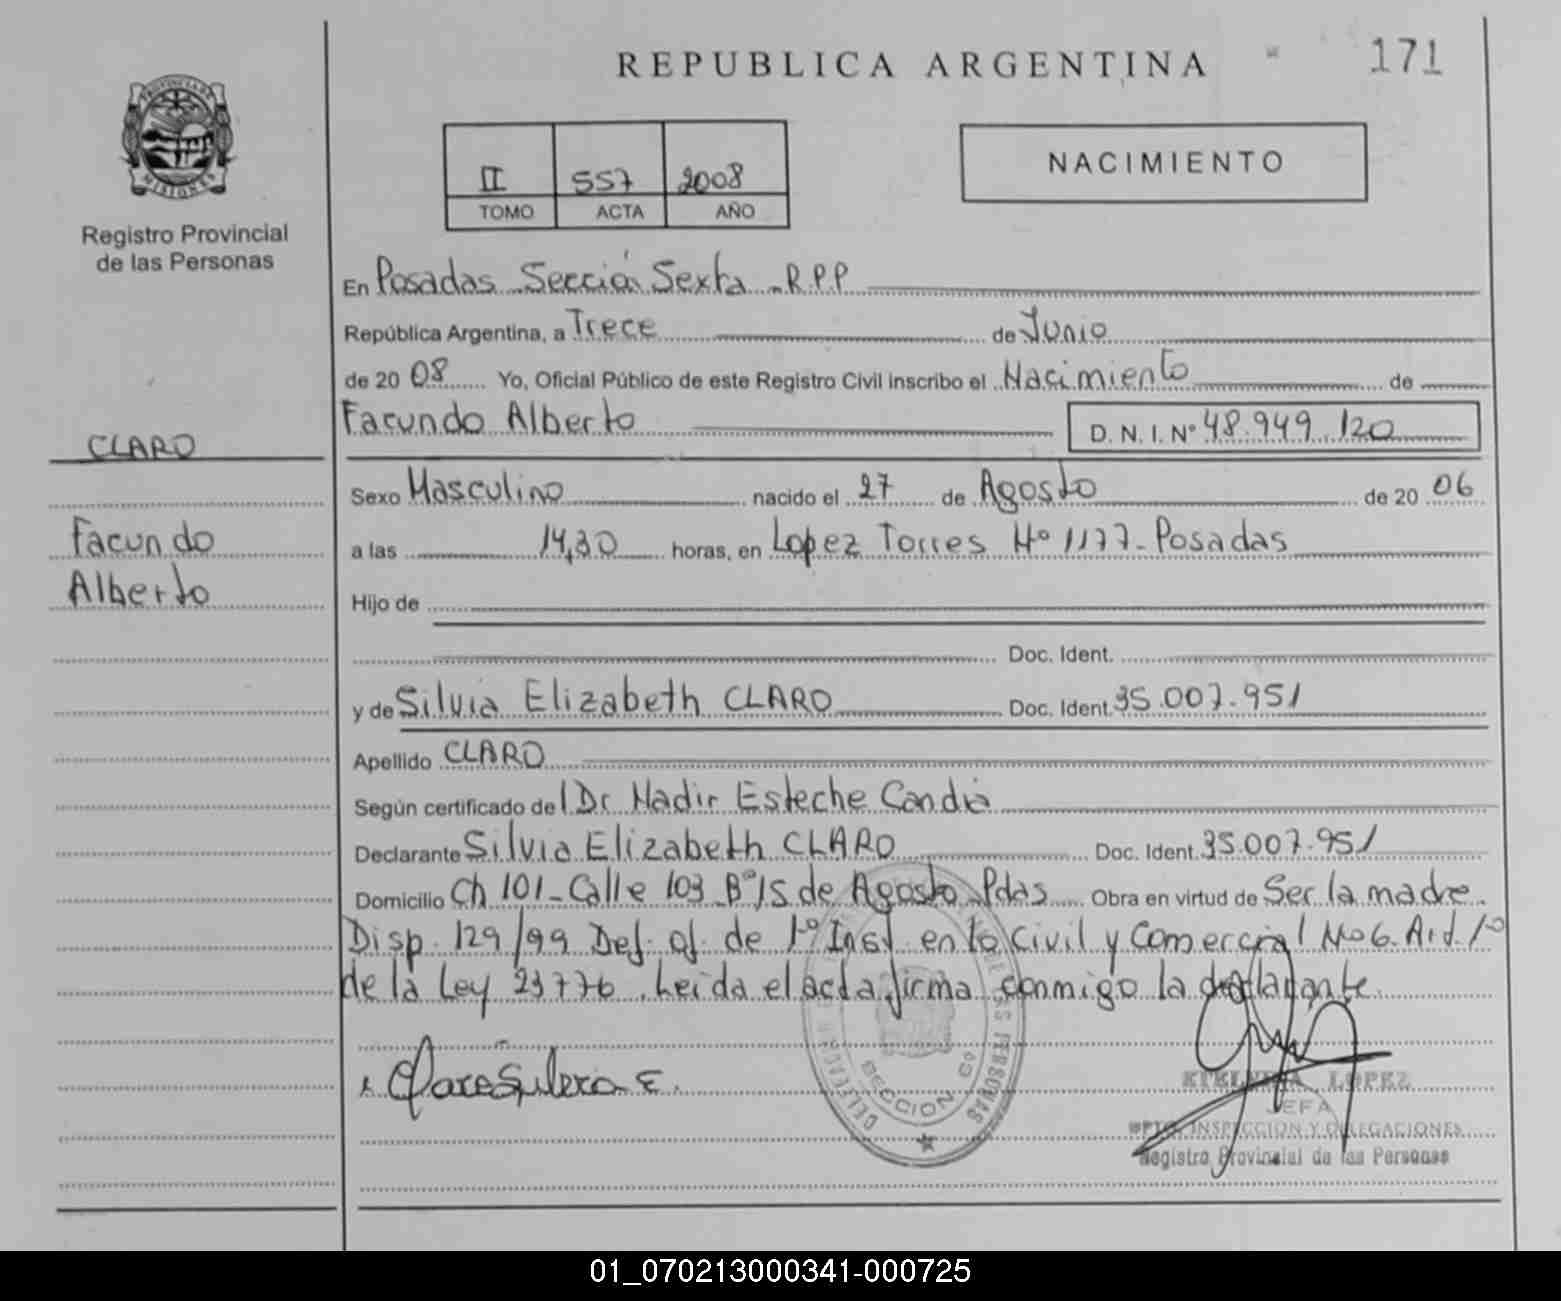 REPUBLICA ARGENTINA
171
PROVINCIA DE
MISIONES
Registro Provincial
de las Personas
II 557 2008
TOMO ACTA AÑO
NACIMIENTO
En Posadas Sección Sexta R.P.P
República Argentina, a Trece de Junio
de 20 08 Yo, Oficial Público de este Registro Civil inscribo el Nacimiento de
Facundo Alberto D. N. I. Nº 48.949.120
CLARO
Sexo Masculino nacido el 27 de Agosto de 20 06
Facundo
a las 14,30 horas, en Lopez Torres Nº 1177- Posadas
Alberto
Hijo de
Doc. Ident.
y de Silvia Elizabeth CLARO Doc. Ident. 35.007.951
Apellido CLARO
Según certificado de l Dr Nadir Esteche Candia
Declarante Silvia Elizabeth CLARO Doc. Ident. 35.007.951
Domicilio Ch 101- Calle 103 Bº 15 de Agosto Pdas Obra en virtud de Ser la madre
Disp. 129/99 Def. of. de 1º Inst en lo Civil y Comercial Nº 6. Art. 1º
de la Ley 23776. Leida el acta firma conmigo la declarante.
SECCION 6º
DE LAS PERSONAS
LOPEZ
JEFA
DPTO. INSPECCION Y DELEGACIONES
Registro Provincial de las Personas
01_070213000341-000725